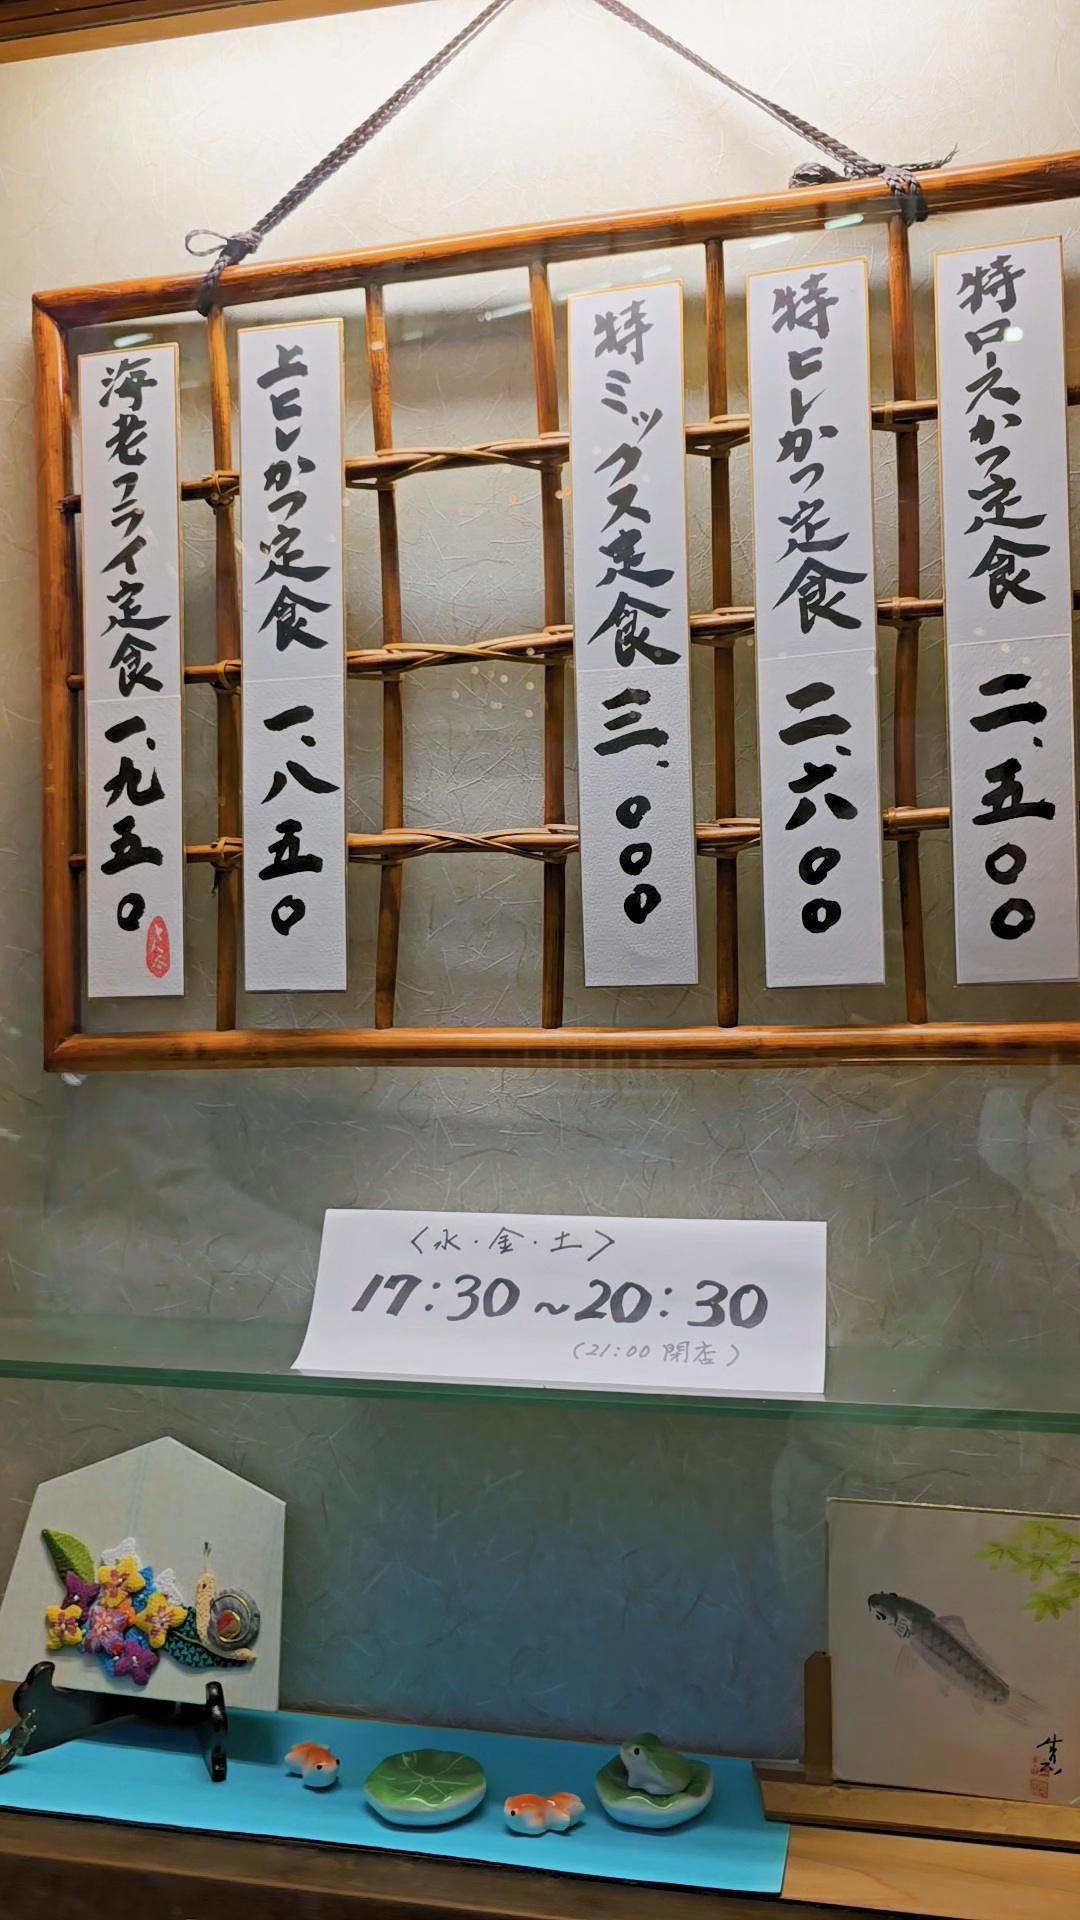 特ロースかつ定食 二、五〇〇
特ヒレかつ定食 二、六〇〇
特ミックス定食 三、〇〇〇
上ヒレかつ定食 一、八五〇
海老フライ定食 一、九五〇
〈水・金・土〉
17:30～20:30
(21:00 閉店)